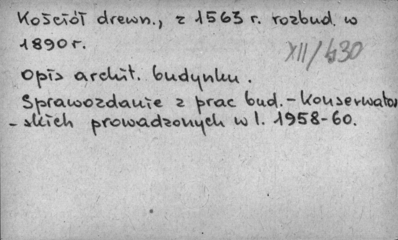 Kościół drewn., z 1563 r. rozbud. w
1890 r.
XII/430
Opis archit. budynku.
Sprawozdanie z prac bud.-konserwator
-skich prowadzonych w l. 1958-60.